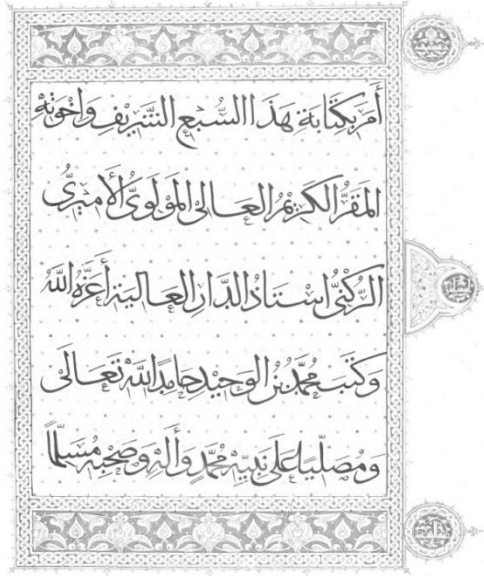 أمر بكتابة هذا السبع الشريف وأخوته
المقر الكريم العالى المولوى الأميرى
الركنى استاذ الدار العالية أعزه الله
وكتب محمد بن الوحيد حامدا لله تعالى
ومصليا على نبيه محمد وأله وصحبه مسلما